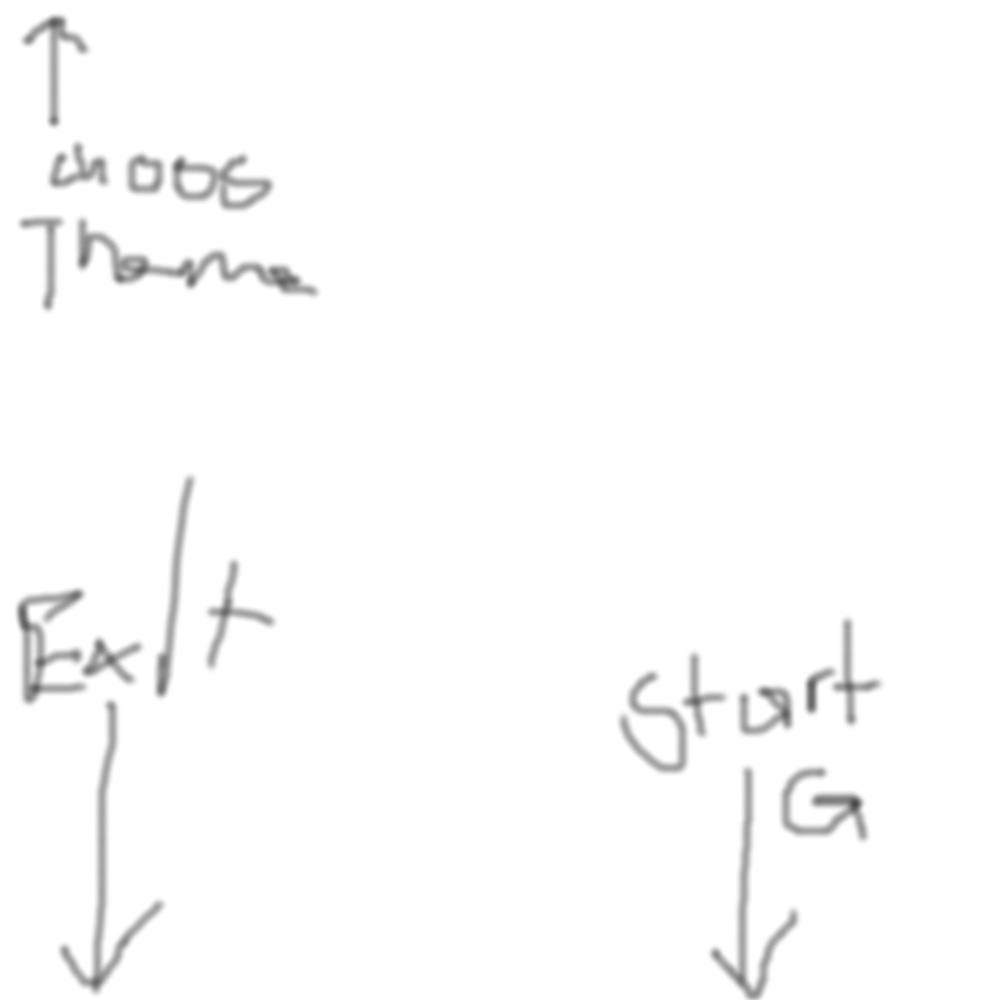 choos
Theme
Exit
Start
G